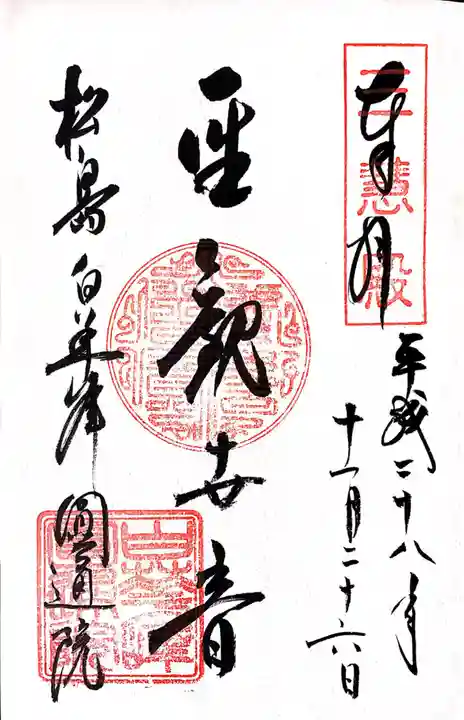 奉拝
三慧殿
平成二十八年
十一月二十六日
聖観世音
松島白華峰圓通院